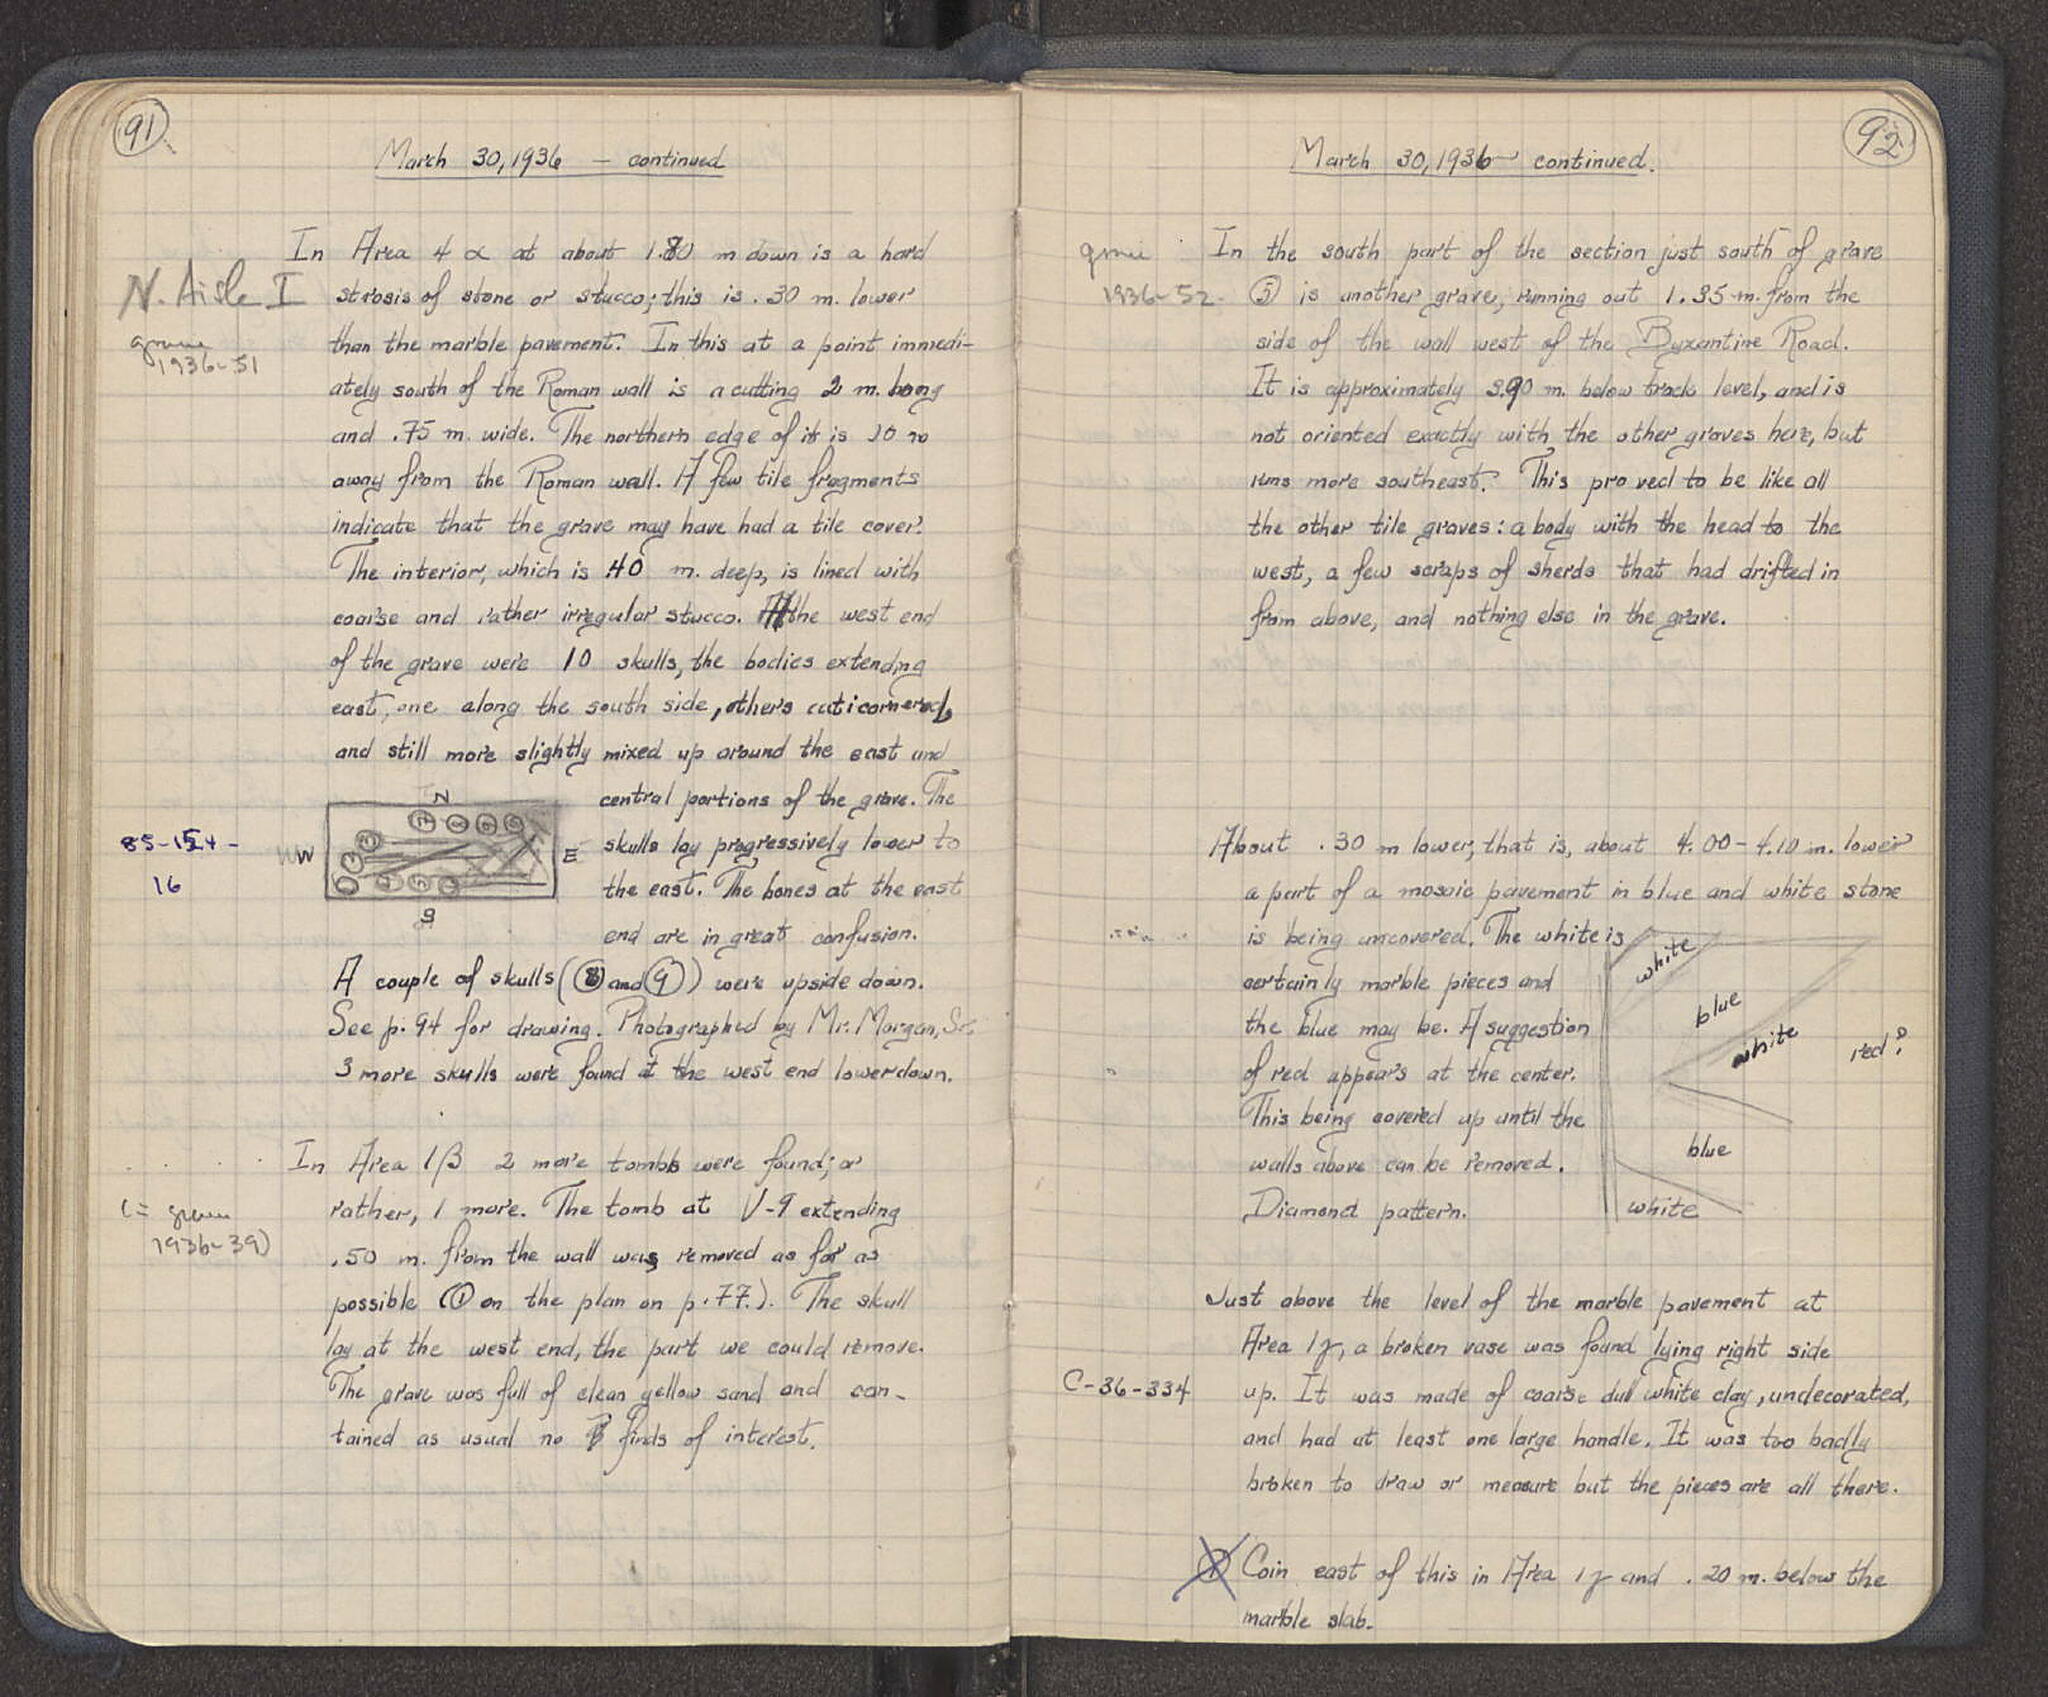 91
March 30, 1936 – continued
In Area 4 α at about 1.80 m down is a hard
N. Aisle I
strosis of stone or stucco; this is .30 m. lower
grave
1936-51
than the marble pavement. In this at a point immedi-
ately south of the Roman wall is a cutting 2 m. long
and .75 m. wide. The northern edge of it is
away from the Roman wall. A few tile fragments
indicate that the grave may have had a tile cover.
The interior, which is .40 m. deep, is lined with
coarse and rather irregular stucco. the west end
of the grave were 10 skulls, the bodies extending
east, one along the south side, others caticornered,
and still more slightly mixed up around the east and
central portions of the grave. The
skulls lay progressively lower to
the east. The bones at the east
end are in great confusion.
N
W
E
S
85-154-
16
A couple of skulls (8 and 9) were upside down.
See p. 94 for drawing. Photographed by Mr. Morgan, Sr.
3 more skulls were found at the west end lower down.
In Area 1β 2 more tombs were found; or
rather, 1 more. The tomb at V-9 extending
(= grave
1936-39)
.50 m. from the wall was removed as far as
possible (1 on the plan on p. 77.). The skull
lay at the west end, the part we could remove.
The grave was full of clean yellow sand and con-
tained as usual no finds of interest.
92
March 30, 1936 – continued.
grave
1936-52
In the south part of the section just south of grave
5 is another grave, running out 1.35 m. from the
side of the wall west of the Byzantine Road.
It is approximately 3.90 m. below track level, and is
not oriented exactly with the other graves here, but
runs more southeast. This proved to be like all
the other tile graves: a body with the head to the
west, a few scraps of sherds that had drifted in
from above, and nothing else in the grave.
About .30 m lower, that is, about 4.00 – 4.10 m. lower
a part of a mosaic pavement in blue and white stone
is being uncovered. The white is
certainly marble pieces and
the blue may be. A suggestion
of red appears at the center.
This being covered up until the
walls above can be removed.
Diamond pattern.
white
blue
white
red?
blue
white
Just above the level of the marble pavement at
Area 1γ, a broken vase was found lying right side
C-36-334
up. It was made of coarse dull white clay, undecorated,
and had at least one large handle. It was too badly
broken to draw or measure but the pieces are all there.
1 Coin east of this in Area 1γ and .20 m. below the
marble slab.